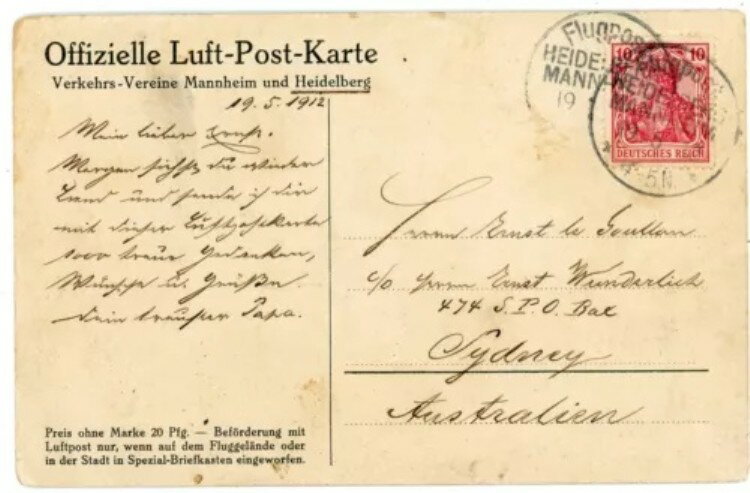 Offizielle Luft-Post-Karte
Verkehrs-Vereine Mannheim und Heidelberg
19.5.1912
Mein lieber Ernst.
Morgen siehst du wieder
Land und sende ich dir
mit dieser Luftpostkarte
1000 treue Gedanken,
Wünsche u. Grüße.
Dein treuster Papa.
Preis ohne Marke 20 Pfg. — Beförderung mit
Luftpost nur, wenn auf dem Fluggelände oder
in der Stadt in Spezial-Briefkasten eingeworfen.
10 10
DEUTSCHES REICH
Flugpost
HEIDELBERG
MANNHEIM
19
Herrn Ernst le Soullon
c/o Herrn Ernst Wunderlich
474 G.P.O. Box
Sydney
Australien